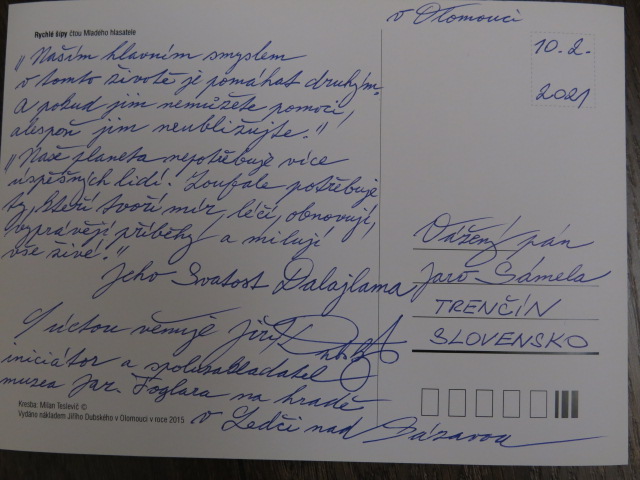 Rychlé šípy čtou Mladého hlasatele
„Naším hlavním smyslem
v tomto životě je pomáhat druhým.
A pokud jim nemůžete pomoci,
alespoň jim neubližujte.“
„Naše planeta nepotřebuje více
úspěšných lidí. Zoufale potřebuje
ty, kteří tvoří mír, léčí, obnovují,
vyprávějí příběhy a milují
vše živé.“
Jeho Svatost Dalajlama
S úctou věnuje Jiří
iniciátor a spoluzakladatel
musea Jar. Foglara na hradě
v Ledči nad Sázavou
Kresba: Milan Teslevič ©
Vydáno nákladem Jiřího Dubského v Olomouci v roce 2015
v Olomouci
10.2.
2021
Vážený pán
Jaro Sámela
TRENČÍN
SLOVENSKO